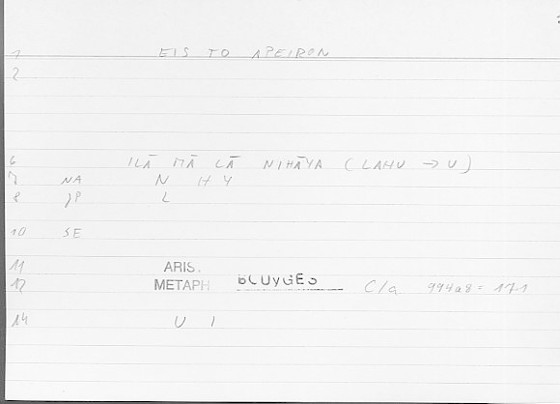 1 EIS TO APEIRON
2
6 ILĀ MĀ LĀ NIHĀYA (LAHU → U)
7 NA N H Y
8 JP L
10 SE
11 ARIS.
12 METAPH BOUYGES C/a 994a8 = 17 1
14 U I